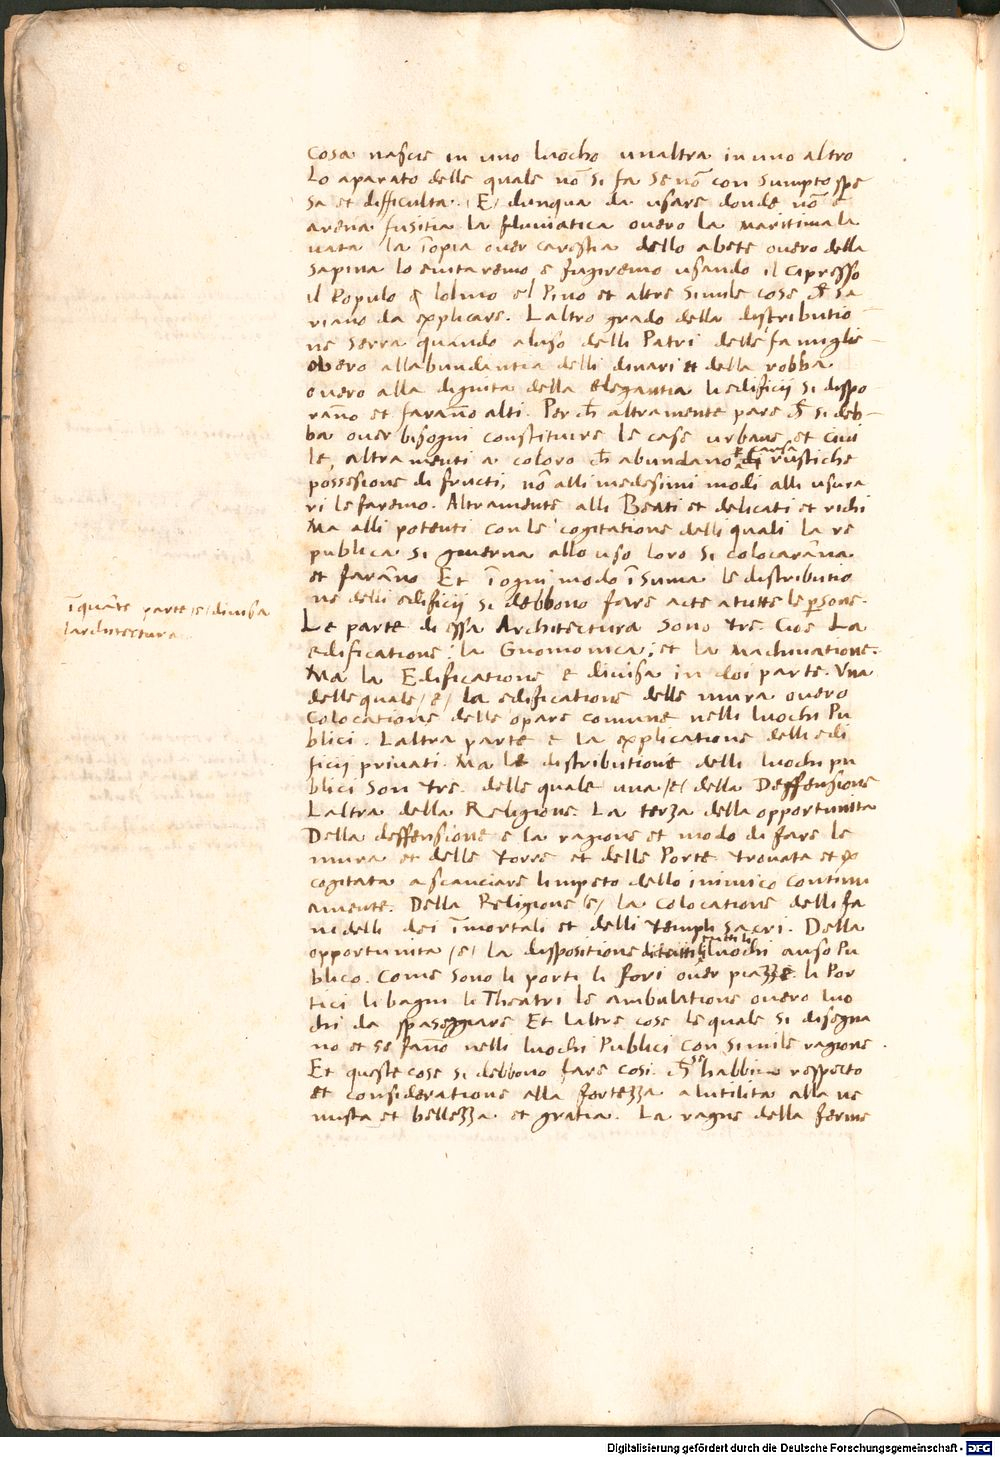 cosa nascie in uno luocho unaltra in uno altro
Lo aparato delle quale nō si fa se nō con sumpto spe
sa et difficulta. /E/ dunqua da usare donde nō e
arena fusitia la fluviatica overo la maritima la
vata la īopia over carestia dello abete overo della
sapina lo evitaremo e fugiremo usando il cipresso
il Populo & lolmo el Pino et altre simile cose ch̄ sa
riano da explicare. Laltro grado della distributio
ne serra quando aluso delli Patri delle famiglie
overo allabundantia delli dinari et della robba
overo alla dignita della elegantia li edificij si dispo
rano et farāno alti. Perch̄ altramente pare ch̄ si deb
ba over bisogni constituire le case urbane, et civi
le, altramenti a coloro ch̄ abundano di rustiche
possesione di fructi, nō alli medesimi modi alli usura
ri le faremo. Altramente alli Beati et delicati et richi
Ma alli potenti con le cogitatione delli quali la re
publica si governa allo uso loro si colocarāna
et farāno Et ī ogni modo ī suma le distributio
ne delli edificij si debbono fare acte a tutte le p̄sone.
īquāte parte /e/ divisa
larchitectura
Le parte di essa Architectura sono tre. Cioe La
edificatione: la Gnomonica; et la Machinatione.
Ma la Edificatione e divisa in doi parte. Una
delle quale /e/ la edificatione delle mura overo
Colocatione delle opare comune nelli luochi Pu
blici. Laltra parte e la explicatione delli edi
ficij privati. Ma le distributione delli luochi pu
blici son tre. delle quale una /e/ della Deffensione
Laltra della Religione. La terza della opportunita
Della deffensione e la ragione et modo di fare le
mura et delle torre et delle Porte trovata et ex
cogitata a scanciare limpeto dello inimico continu
amente. Della Religione /e/ la colocatione delli fa
ni delli dei īmortali et delli templi sacri. Della
opportunita /e/ la dispositione tutti li luochi auso Pu
blico. Come sono li porti li fori over piazze. li Por
tici li bagni li Theatri le ambulatione overo luo
chi da spaseggiare Et laltre cose le quale si disegna
no et se fāno nelli luochi Publici con simile ragione.
Et queste cose si debbono fare cosi. ch̄ se habbino respecto
et consideratione alla fortezza alutilita alla ve
nusta et bellezza et gratia. La ragne della ferme